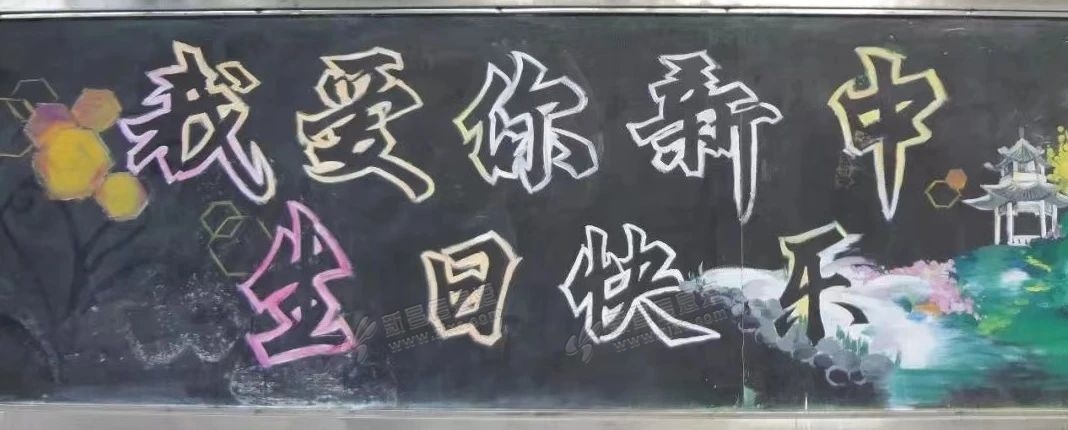 我爱你新中
生日快乐